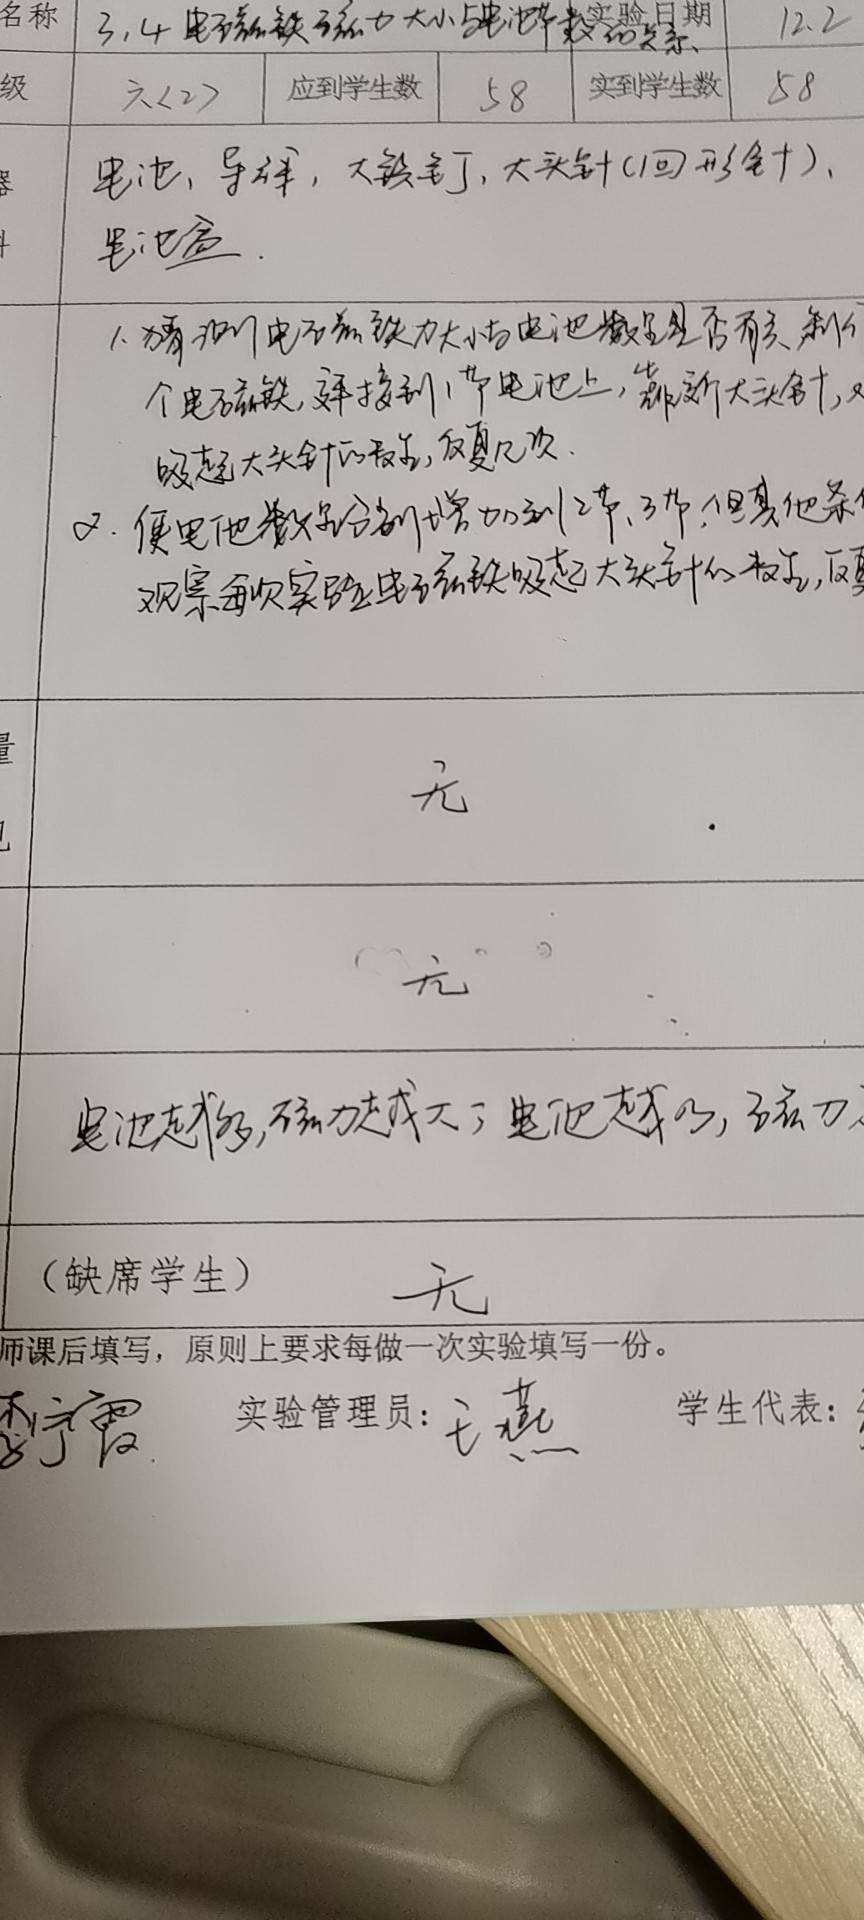 名称 3.4 电磁铁磁力大小与电池节数的关系 实验日期 12.2
级 六(2) 应到学生数 58 实到学生数 58
器 电池、导线,大铁钉、大头针(回形针)、
电池盒.
1. 猜测电磁铁力大小与电池数量是否有关,制作
个电磁铁,连接到1节电池上,靠近大头针,
吸起大头针的数量,反复几次.
2. 使电池数量分别增加到2节、3节,但其他条件
观察每次实验电磁铁吸起大头针的数量,反复
量
无
无
电池越多,磁力越大;电池越少,磁力
(缺席学生) 无
师课后填写,原则上要求每做一次实验填写一份。
霞 实验管理员:王燕 学生代表: